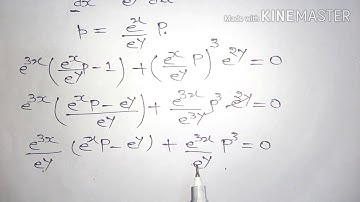 Made with KINEMASTER
dx
p = e^x/e^y P.
e^{3x}(e^x/e^y P-1) + (e^x/e^y P)^3 e^{2y} = 0
e^{3x}((e^x P - e^y)/e^y) + e^{3x}/e^{3y} P^3 e^{2y} = 0
e^{3x}/e^y (e^x P - e^y) + e^{3x}/e^y P^3 = 0